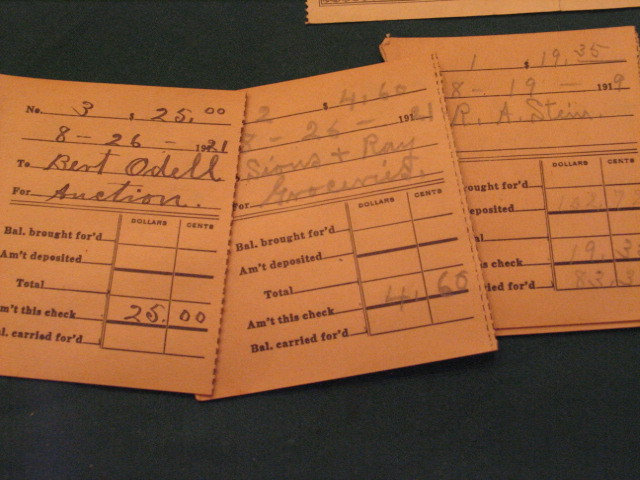 No. 3 $ 25.00
8 - 26 - 1921
To Bert Odell
For Auction.
DOLLARS CENTS
Bal. brought for'd
Am't deposited
Total
Am't this check 25 00
Bal. carried for'd
2 $ 4.60
8 - 26 - 1921
Sions + Ray
For Groceries.
DOLLARS CENTS
Bal. brought for'd
Am't deposited
Total
Am't this check 4. 60
Bal. carried for'd
1 $ 19.35
8 - 19 - 191
R. A. Stein.
DOLLARS CENTS
ought for'd
eposited
al
s check 19.3
ied for'd 83.3